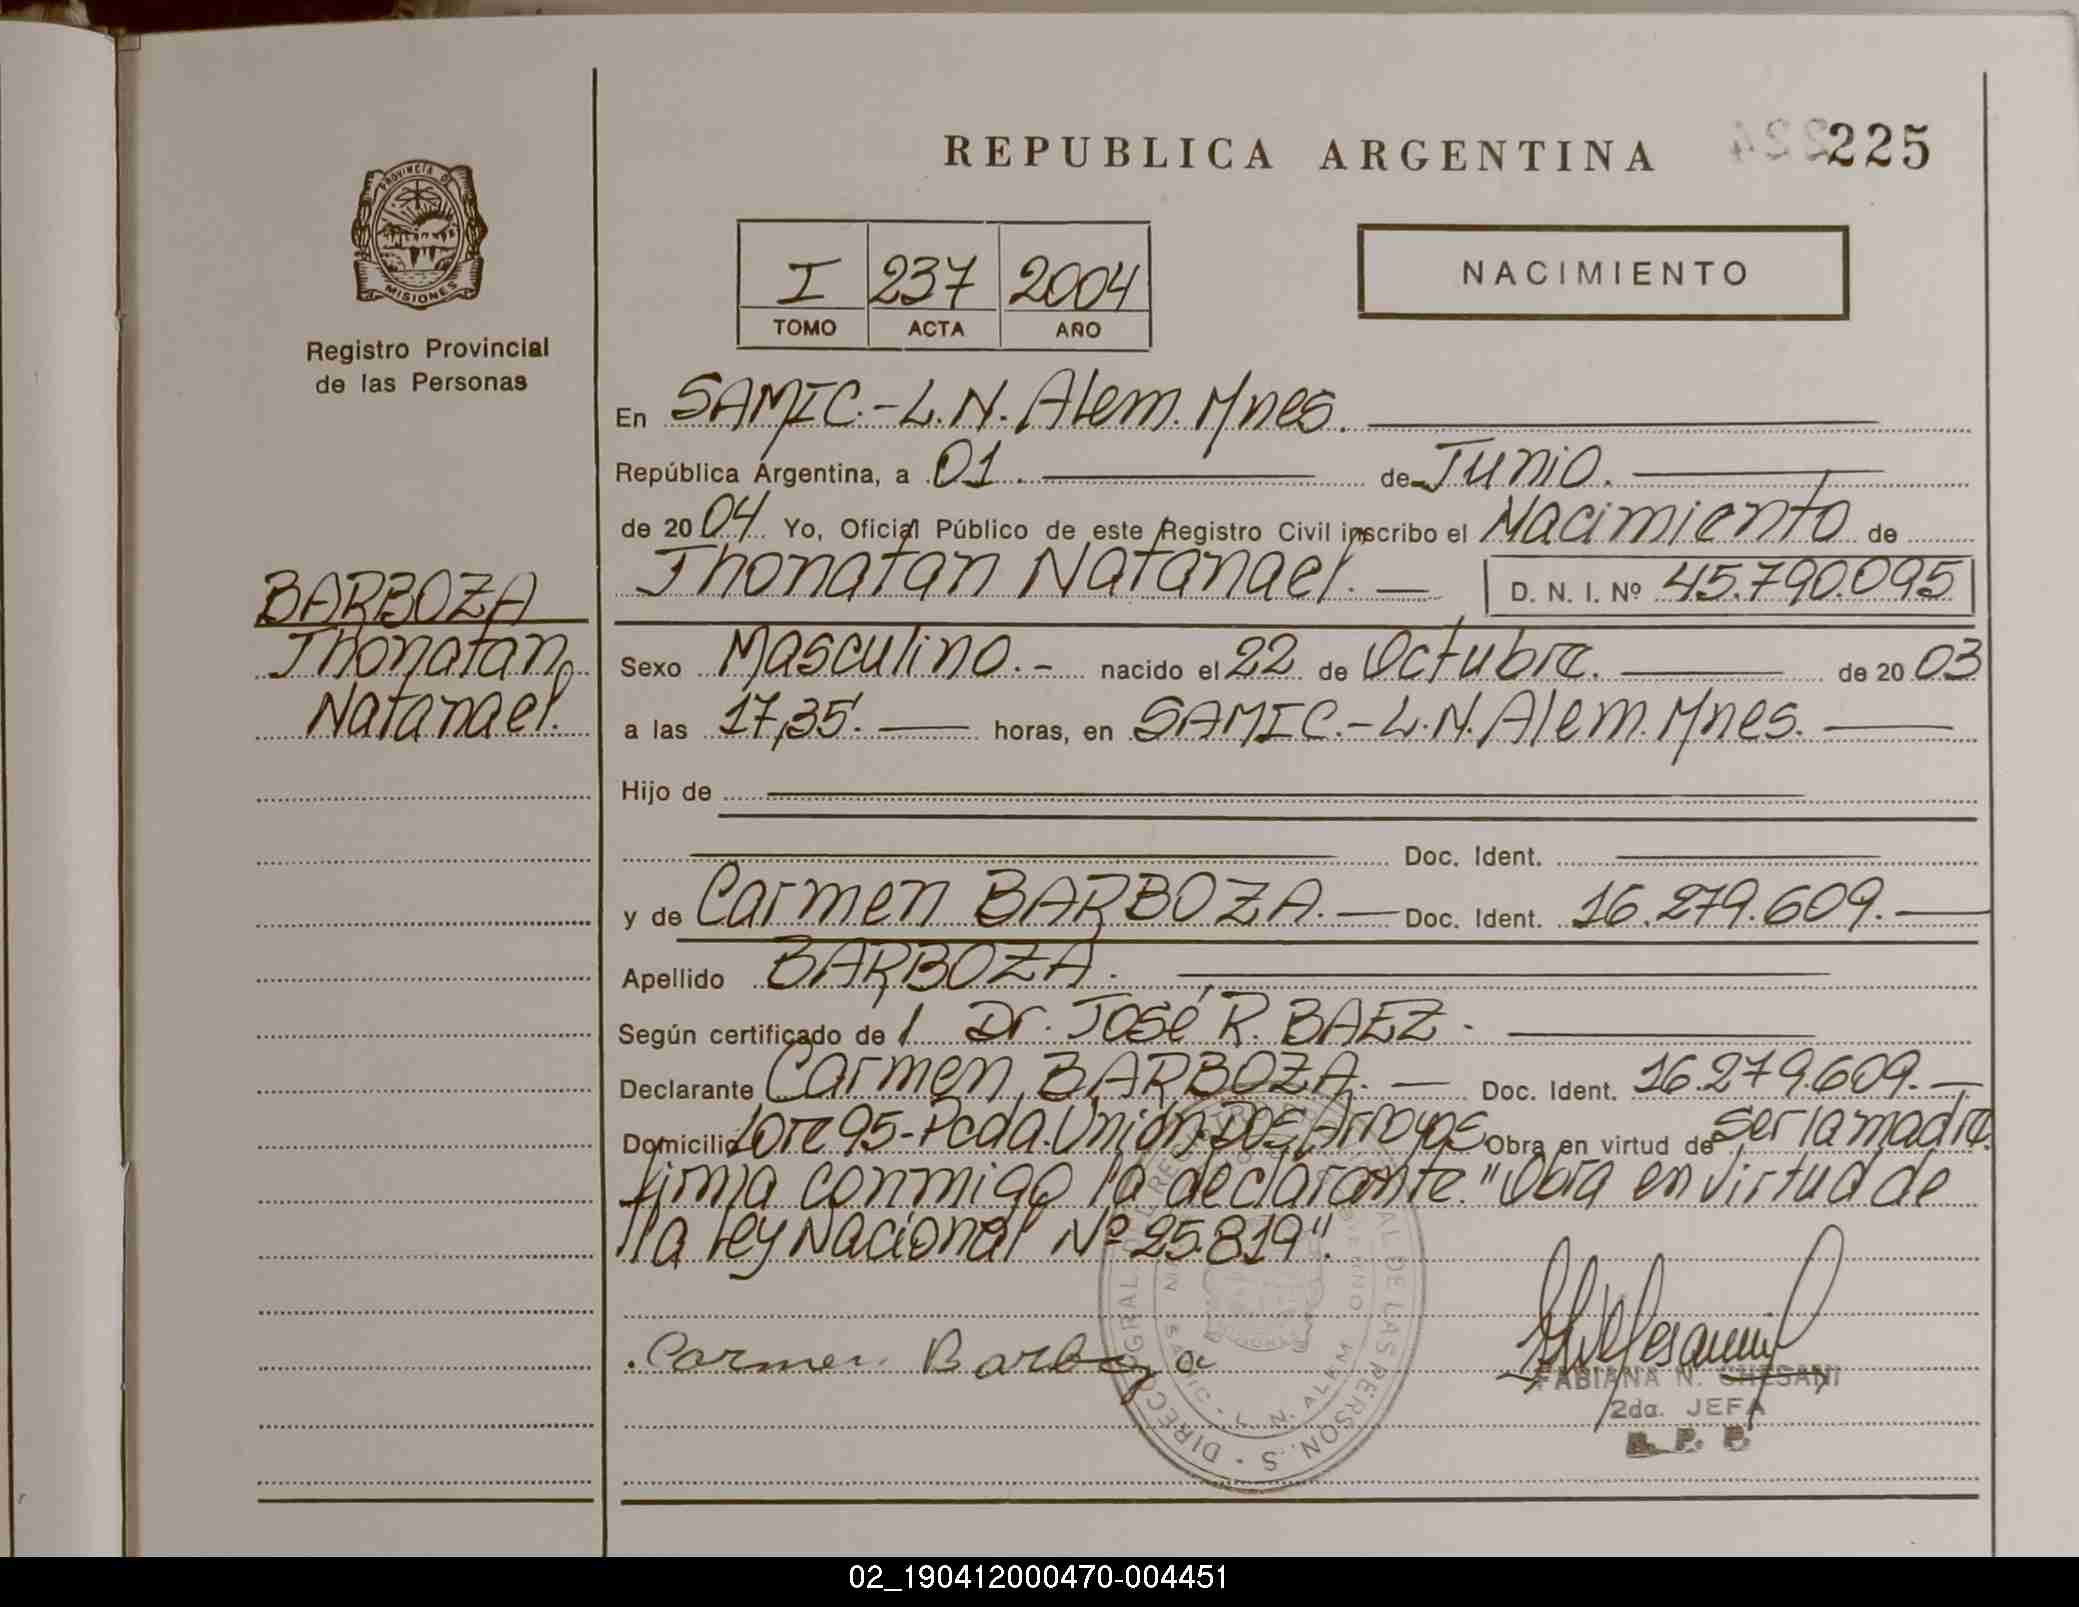 REPUBLICA ARGENTINA
225
PROVINCIA DE
MISIONES
Registro Provincial
de las Personas
I 237 2004
TOMO ACTA AÑO
NACIMIENTO
En SAMIC.-L.N.Alem.Mnes.
República Argentina, a 01. de Junio.
de 2004. Yo, Oficial Público de este Registro Civil inscribo el Nacimiento de
Jhonatan Natanael. D. N. I. Nº 45.790.095
BARBOZA
Jhonatan
Natanael.
Sexo Masculino.- nacido el 22 de Octubre. de 2003
a las 17,35'. horas, en SAMIC.-L.N.Alem.Mnes.
Hijo de
Doc. Ident.
y de Carmen BARBOZA. Doc. Ident. 16.279.609.
Apellido BARBOZA.
Según certificado de / Dr. José R. BAEZ.
Declarante Carmen BARBOZA. Doc. Ident. 16.279.609.
Domicilio Lote 95-Pcda.Unión-Dos Arroyos Obra en virtud de ser la madre.
firma conmigo la declarante. "Obra en virtud de
lla Ley Nacional Nº 25.819".
Carmen Barboza
FABIANA N. CHESANI
2da. JEFA
R. P. P.
L. N. ALEM
02_190412000470-004451